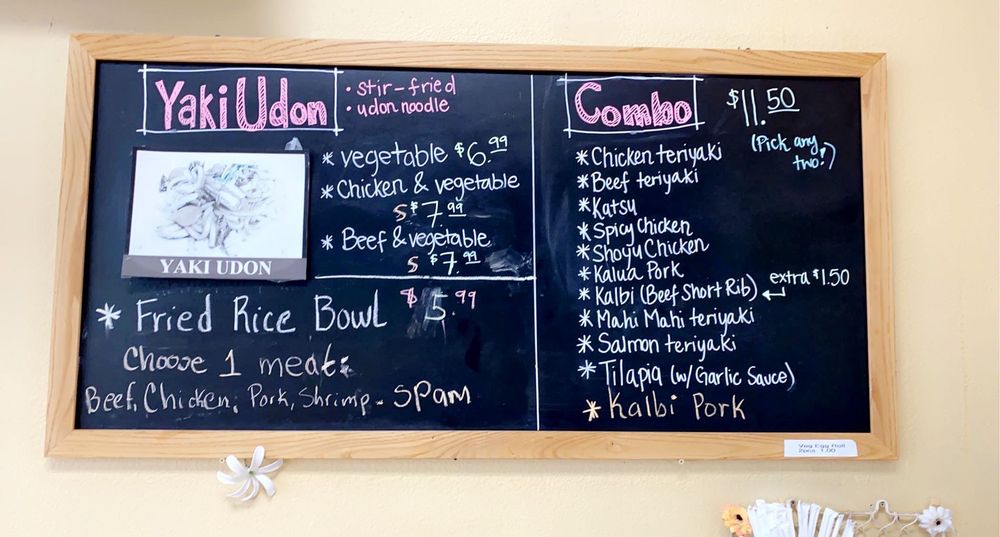 Yaki Udon
• stir-fried
• udon noodle
* vegetable $6.99
* Chicken & vegetable
S $7.99
* Beef & vegetable
S $7.99
YAKI UDON
* Fried Rice Bowl $5.99
Choose 1 meat:
Beef, Chicken, Pork, Shrimp - SPam
Combo $11.50
(Pick any two!)
* Chicken teriyaki
* Beef teriyaki
* Katsu
* Spicy Chicken
* Shoyu Chicken
* Kalua Pork
* Kalbi (Beef Short Rib) ↵ extra $1.50
* Mahi Mahi teriyaki
* Salmon teriyaki
* Tilapia (w/ Garlic Sauce)
* Kalbi Pork
Veg Egg Roll
2pcs 1.00